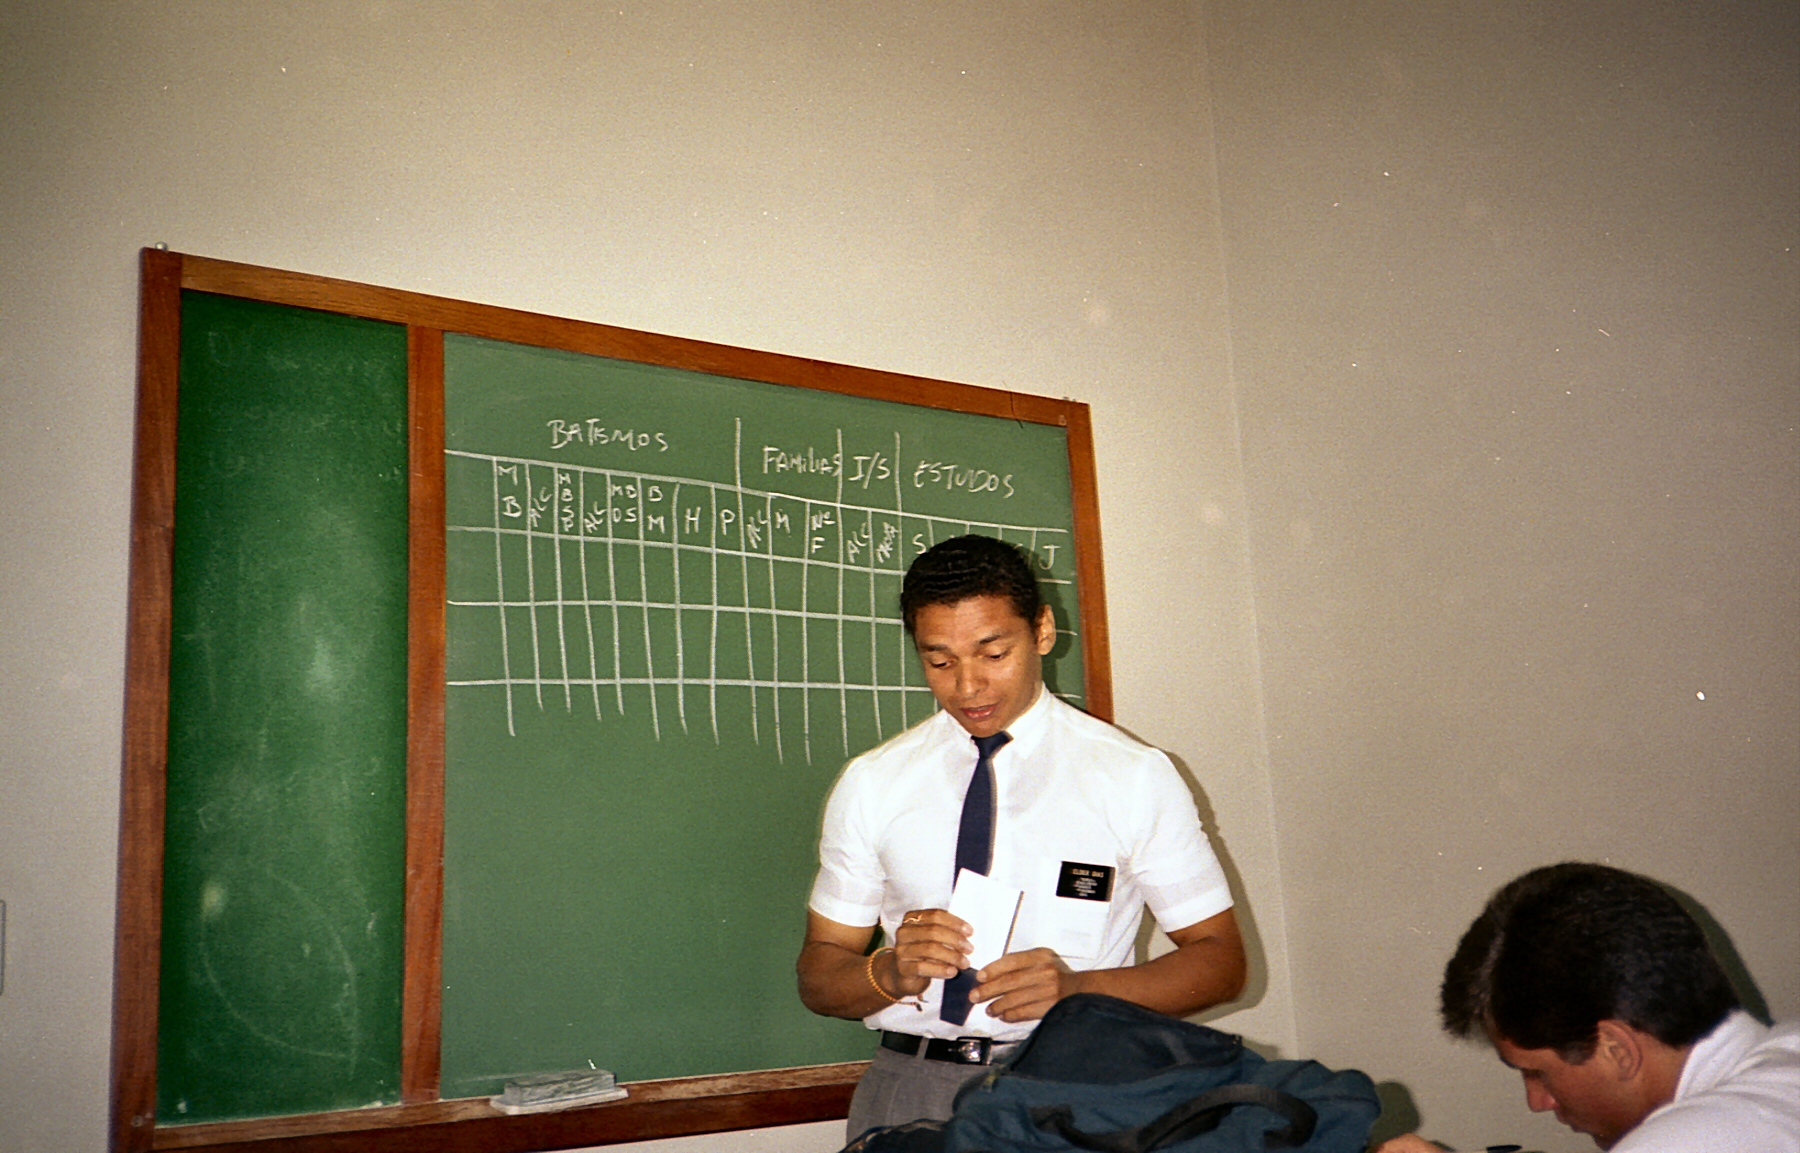 BATISMOS FAMILIAS I/S ESTUDOS
MB ALC MBSP ALC MBDS BM H P ALC M Nº F ALC S J
ELDER DIAS